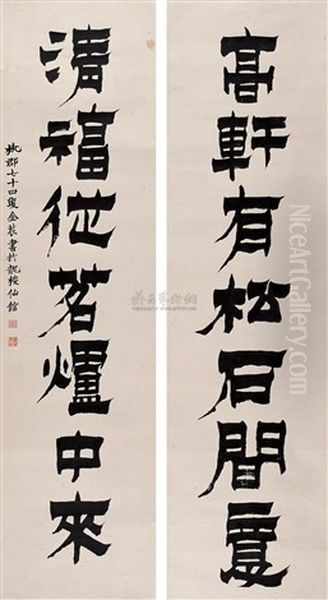 高軒有松石間意
清福從茗爐中來
杭郡七十四叟金農書於龍梭仙館
NiceArtGallery.com